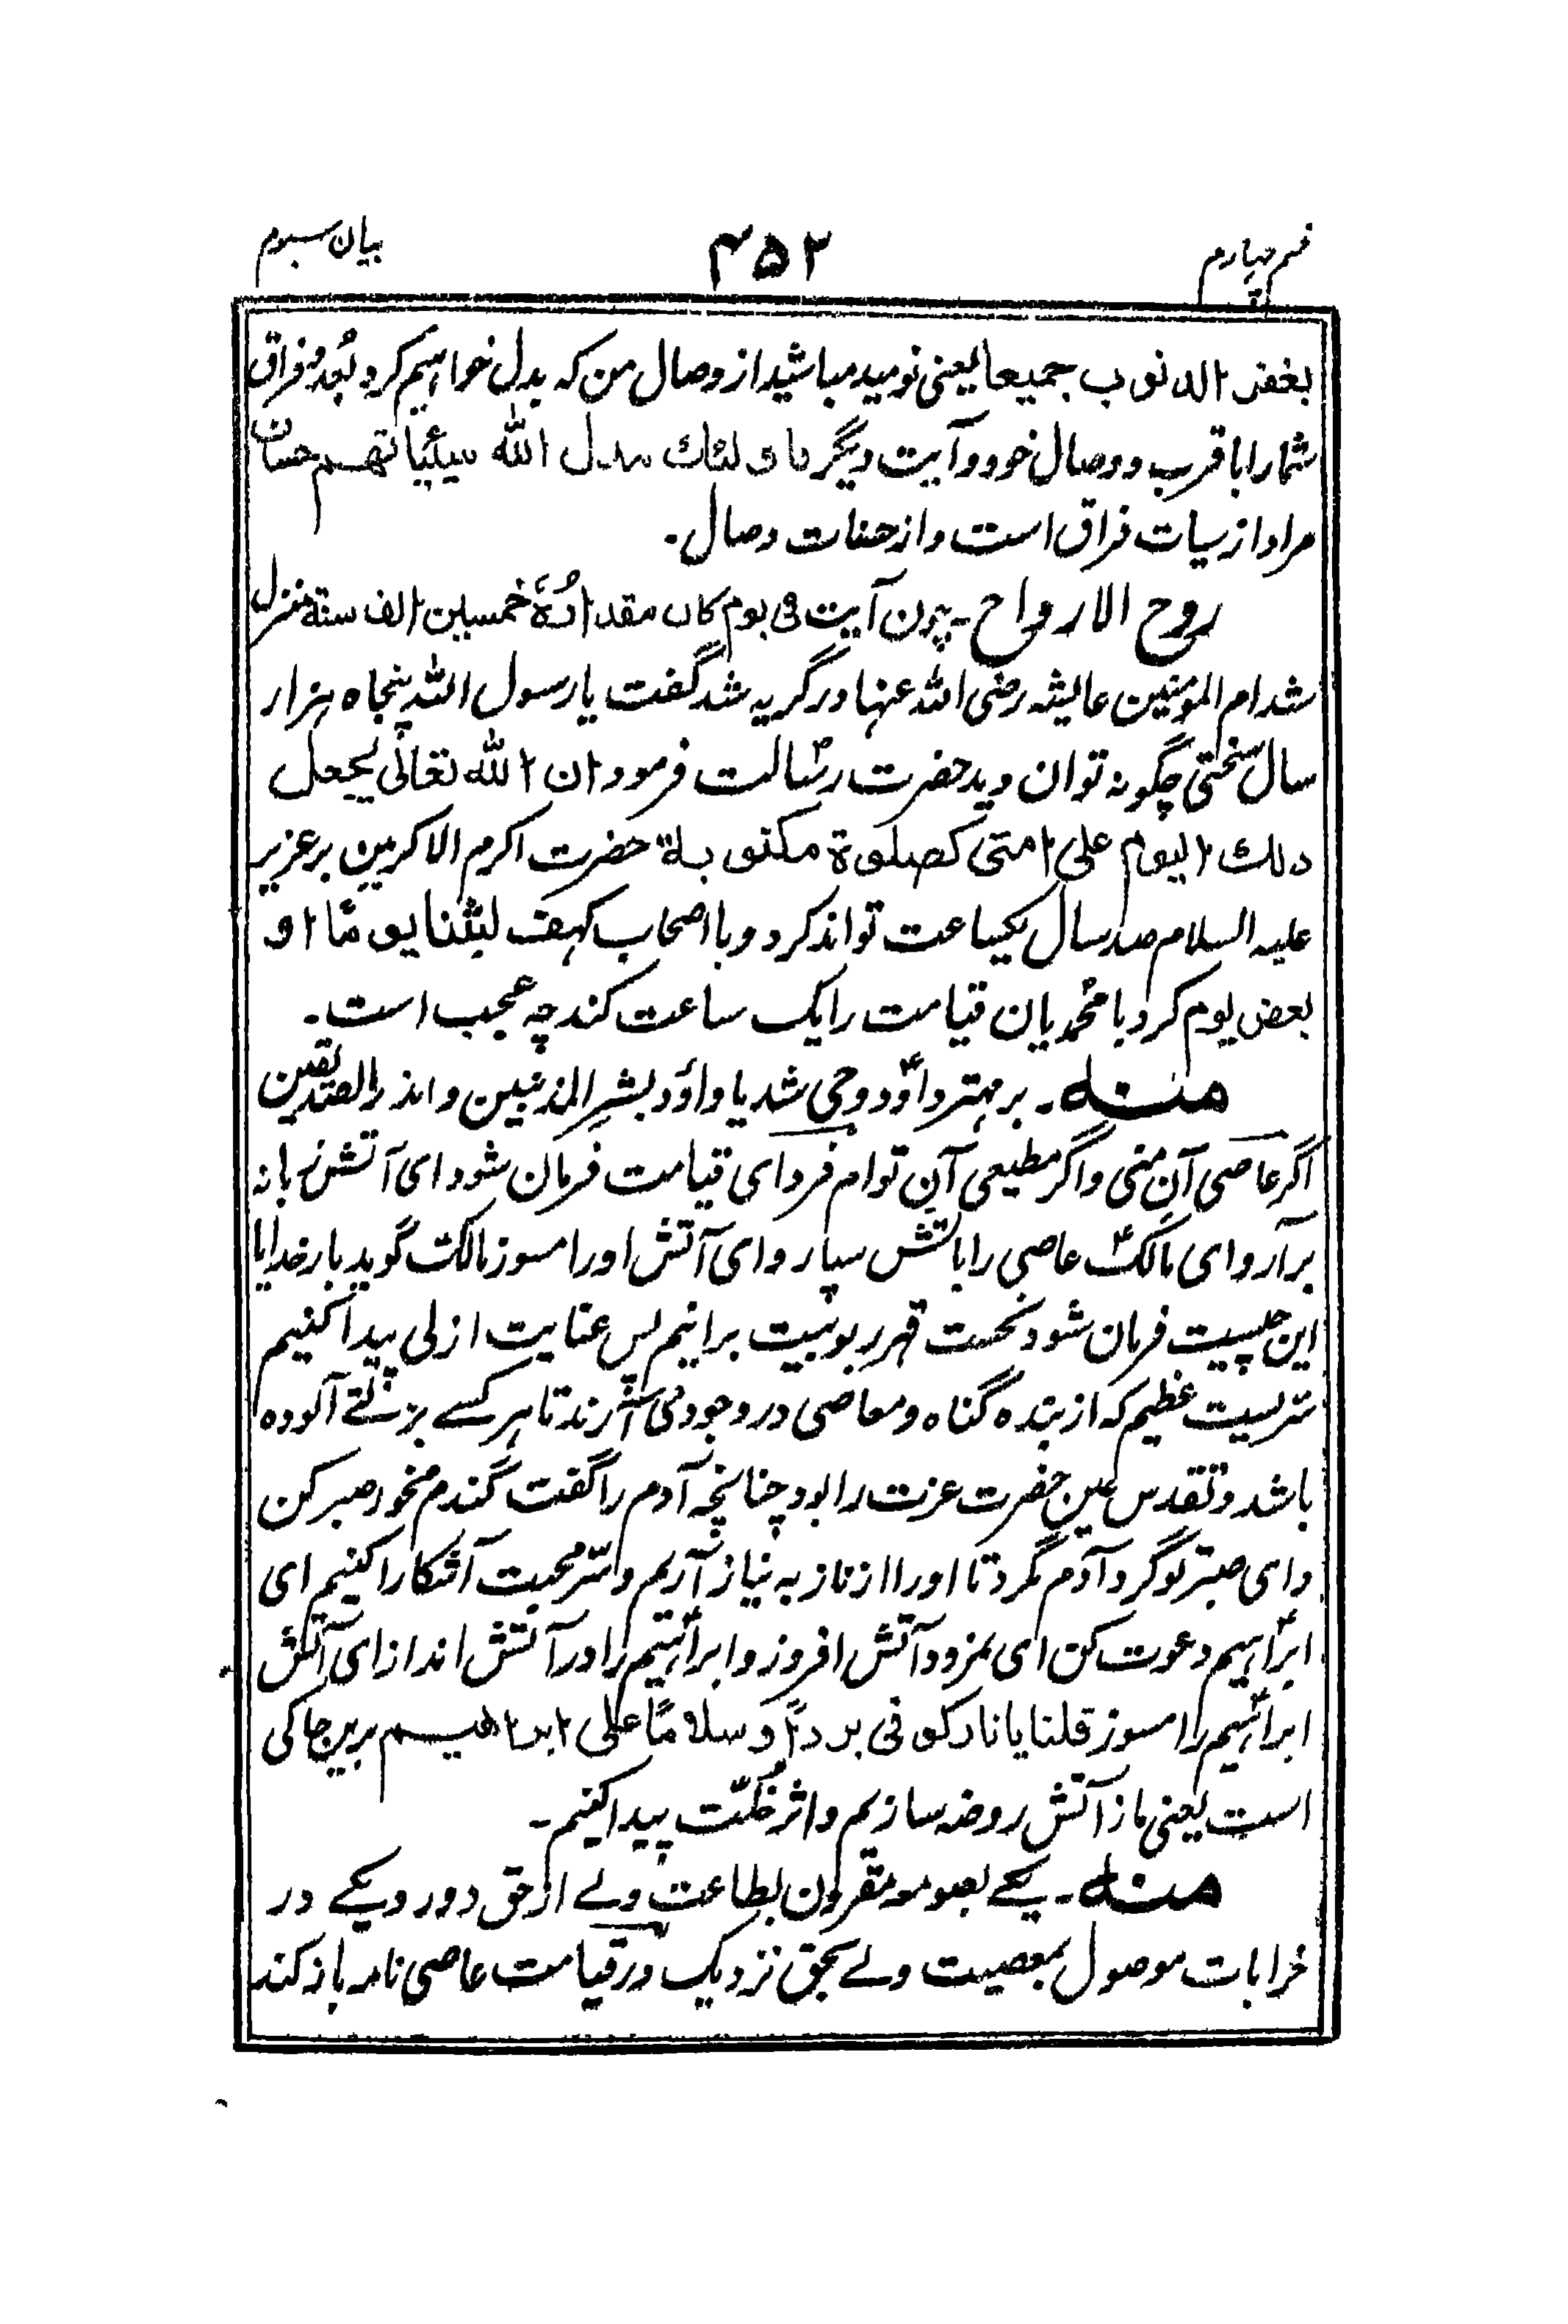 قسم چهارم ۴۵۲ بیان سوم
یغفر الذنوب جمیعا یعنی نومید مباشید از وصال من که بدل خواهیم کرد بُعد و فراق
شما را با قرب و وصال خود و آیت دیگر فاولئك یبدل الله سیئیاتهم حسنات
مراد از سیات فراق است و از حسنات وصال۔
روح الارواح۔ چون آیت فی یوم کان مقدارُهٗ خمسین الف سنة منزل
شد ام المومنین عایشه رضی الله عنها در گریه شد گفت یا رسول الله پنجاه هزار
سال سختی چگونه توان دید حضرت رسالت فرمود ان الله تعالی یجعل
ذلك الیوم علی امتی کصلوة مکتوبة حضرت اکرم الاکرمین بر عزیر
علیه السلام صد سال یکساعت تواند کرد و با اصحاب کهف لبثنا یومًا او
بعض یوم کرد با محمدیان قیامت را یک ساعت کند چه عجب است۔
منه۔ بر مهتر داؤد وحی شد یا داؤد بشرِ المذنبین و انذر الصدیقین
اگر عاصی آنِ منی و اگر مطیعی آنِ توام فردای قیامت فرمان شود ای آتش زبانه
برآر و ای مالک عاصی را بآتش سپار و ای آتش او را مسوز مالک گوید بار خدایا
این چیست فرمان شود نخست قهر ربوبیت برانیم پس عنایت ازلی پیدا کنیم
سّریست عظیم که از بنده گناه و معاصی در وجود می آرند تا هر کسے بزلتے آلوده
باشد و تقدس عین حضرت عزت را بود چنانچه آدم را گفت گندم مخور صبر کن
و ای صبر تو گرد آدم مگرد تا او را از ناز به نیاز آریم و سّر محبت آشکارا کنیم ای
ابراهیم دعوت کن ای نمرود آتش افروز و ابراهیم را در آتش انداز ای آتش
ابراهیم را مسوز قلنا یا نار کونی بردًا و سلامًا علی ابراهیم بریں جاکی
است یعنی ما از آتش روضه سازیم و اثر خُلّت پیدا کنیم۔
منه۔ یکے بصومعه مقرون بطاعت ولے از حق دور و یکے در
خرابات موصول بمعصیت ولے بحق نزدیک در قیامت عاصی نامه باز کند